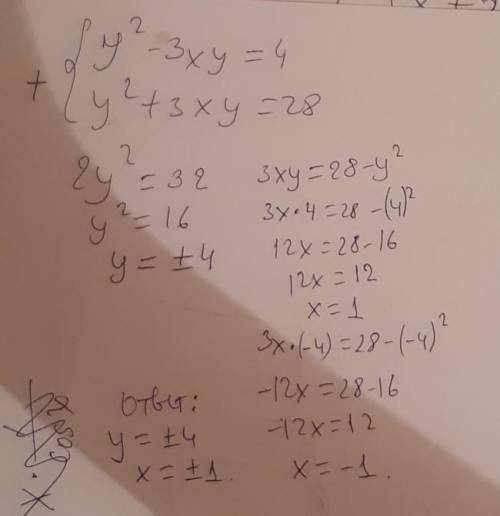 y² - 3xy = 4
+ { y² + 3xy = 28
2y² = 32
y² = 16
y = ±4
3xy = 28 - y²
3x·4 = 28 - (4)²
12x = 28 - 16
12x = 12
x = 1
3x·(-4) = 28 - (-4)²
-12x = 28 - 16
-12x = 12
x = -1.
Ответ:
y = ±4
x = ±1.